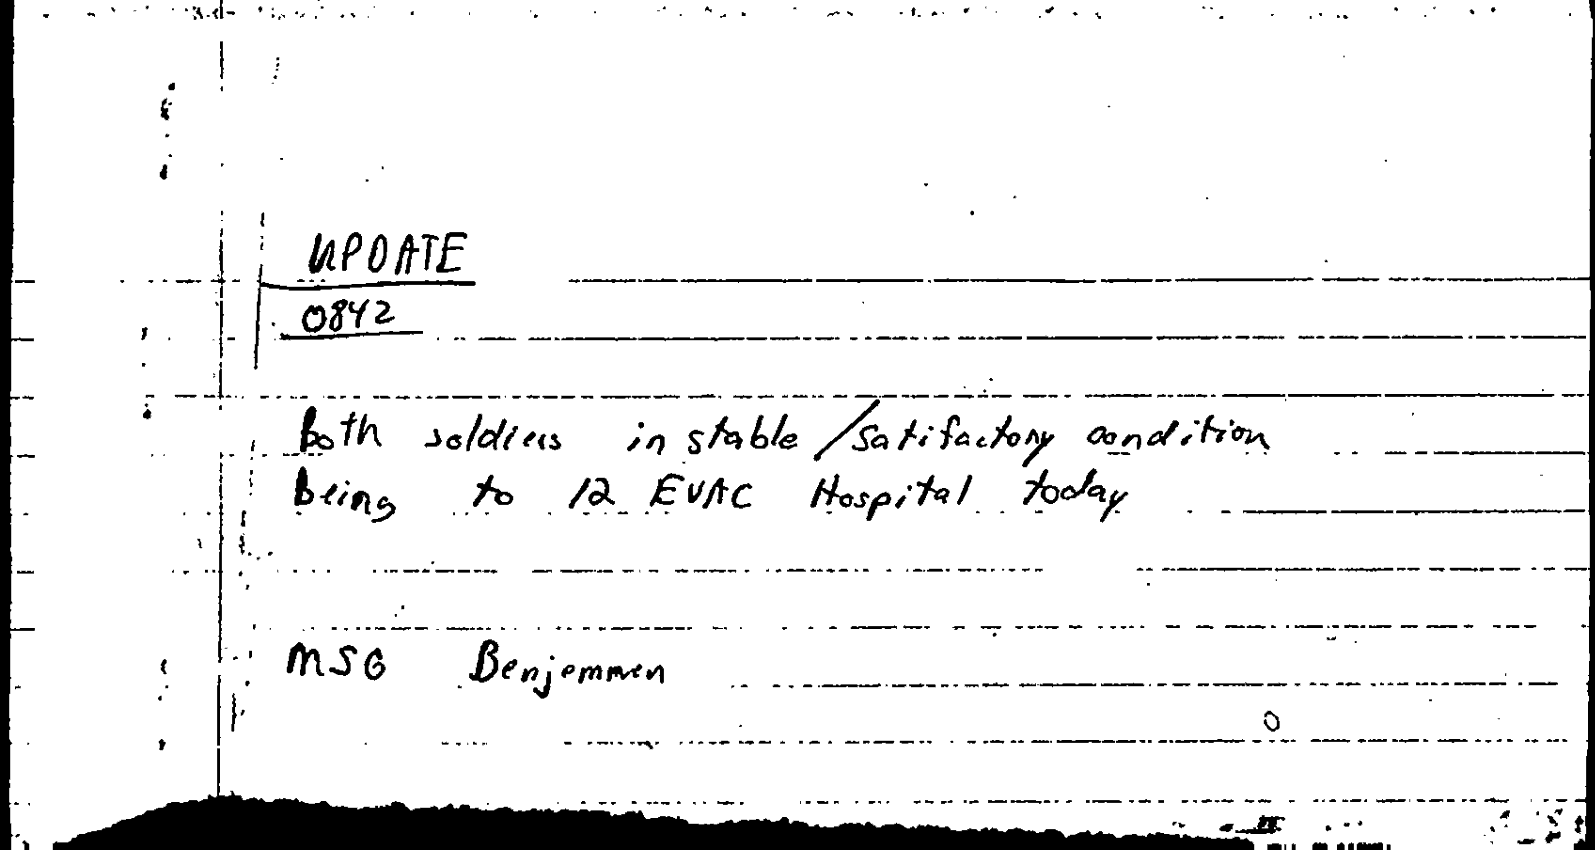 UPDATE
0842
Both soldiers in stable/satifactory condition
being to 12 EVAC Hospital today
MSG Benjemmen